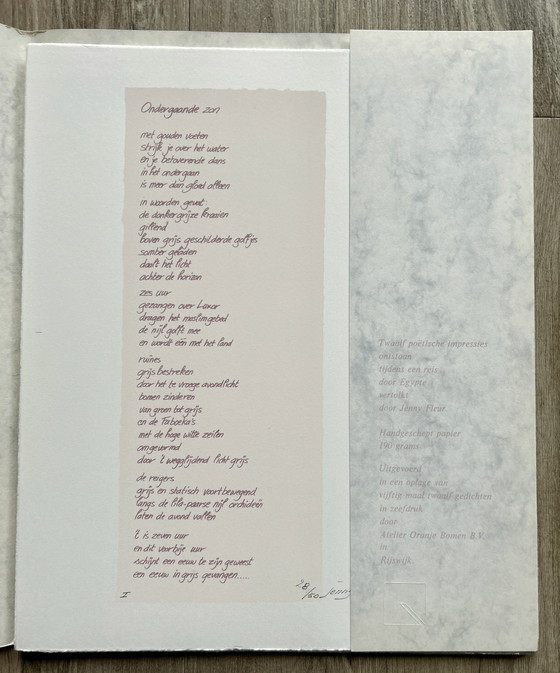 Ondergaande zon
met gouden voeten
strijk je over het water
en je betoverende dans
in het ondergaan
is meer dan gloed alleen
in woorden gevat:
de donkergrijze kraaien
gillend
boven grijs geschilderde golfjes
somber geladen
daalt het licht
achter de horizon
zes uur
gezangen over Luxor
dragen het moslimgebed
de nijl golft mee
en wordt één met het land
ruïnes
grijs bestreken
door het te vroege avondlicht
bomen zinderen
van groen tot grijs
en de
met de hoge witte zeilen
omgevormd
door 't wegglijdend licht grijs
de reigers
grijs en statisch voortbewegend
langs de lila-paarse nijl orchideeën
laten de avond vallen
't is zeven uur
en dit voorbije uur
schijnt een eeuw te zijn geweest
een eeuw in grijs gevangen.....
I
28/50 Jenny
Twaalf poëtische impressies
ontstaan
tijdens een reis
door Egypte
vertolkt
door Jenny Fleur.
Handgeschept papier
190 grams
Uitgevoerd
in een oplage van
vijftig maal twaalf gedichten
in zeefdruk
door
Atelier Oranje Bomen B.V.
in
Rijswijk.